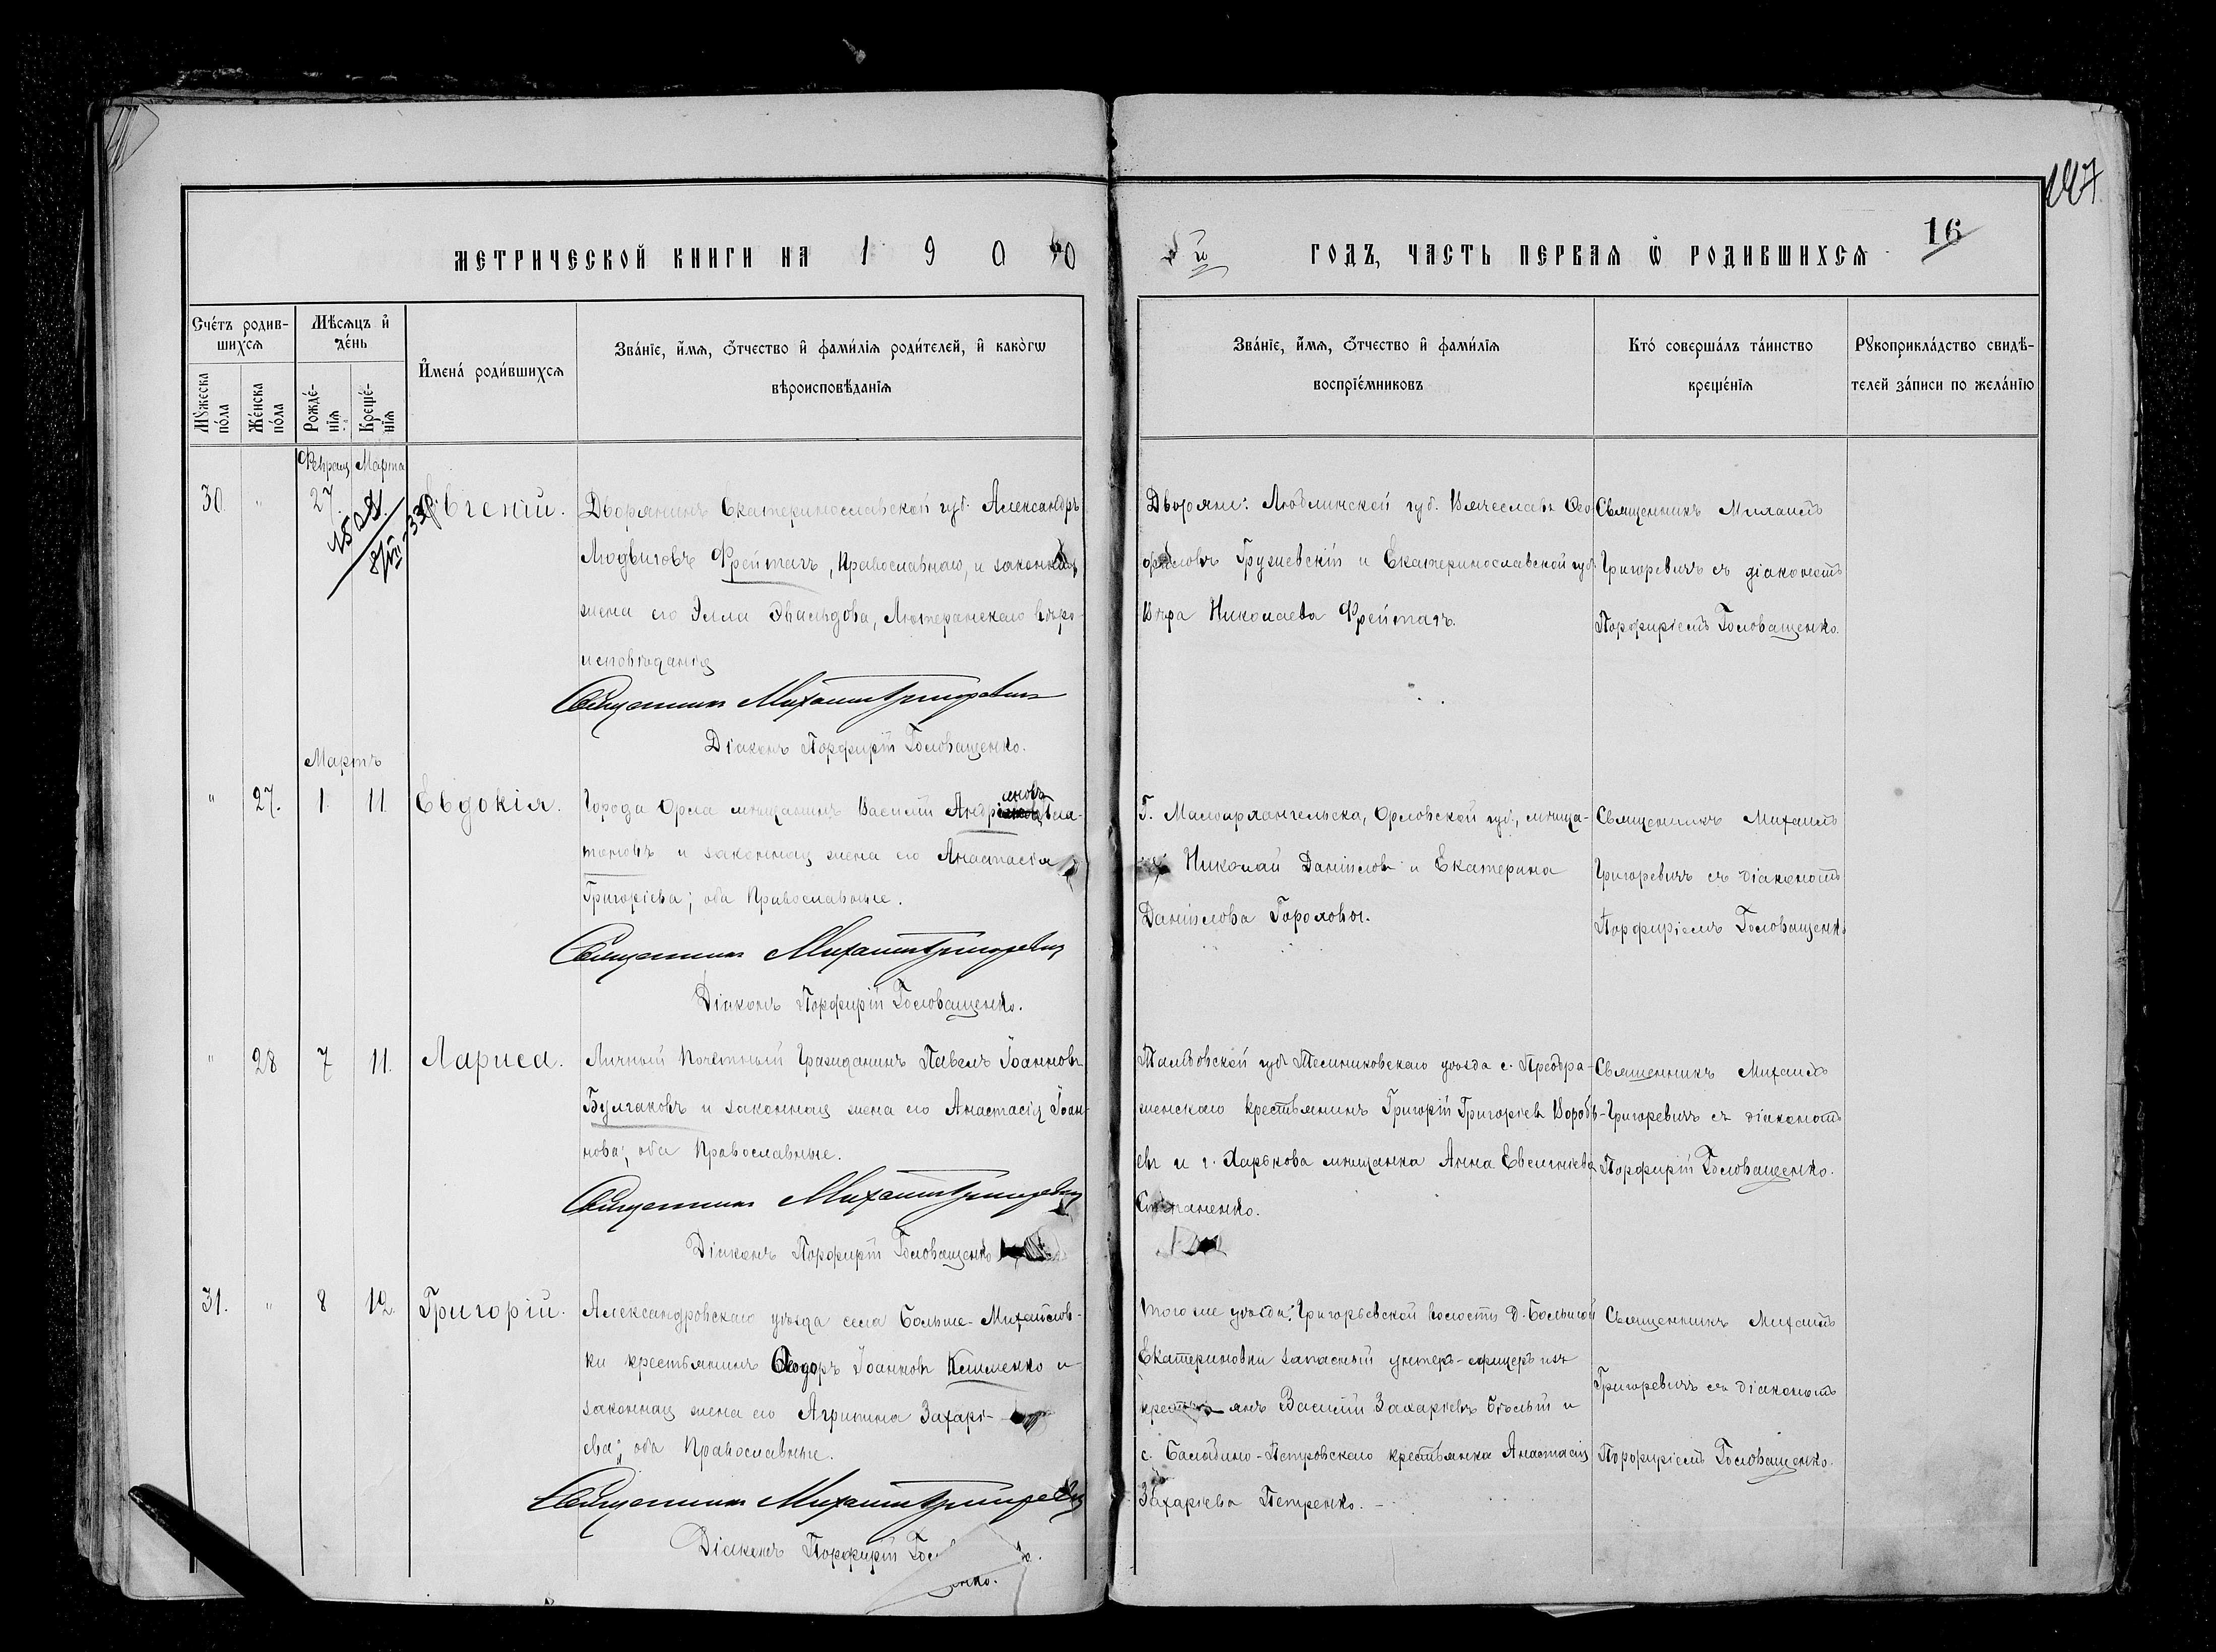 МЕТРИЧЕСКОЙ КНИГИ НА 1900
й ГОДЪ, ЧАСТЬ ПЕРВАЯ Ѽ РОДИВШИХСЯ
16
Сче́тъ родив-
шихсѧ
Мѣсѧцъ и҆
де́нь
Мꙋжеска
по́ла
Же́нска
по́ла
Рожде́-
нїѧ
Креще́-
нїѧ
И҆мена́ роди́вшихсѧ
Зва́нїе, и҆́мѧ, ѻ҆́тчество и҆ фами́лїѧ роди́телей, и҆ како́гѡ
вѣроисповѣ́данїѧ
Зва́нїе, и҆́мѧ, ѻ҆́тчество и҆ фами́лїѧ
воспрїе́мниковъ
Кто́ соверша́лъ та́инство
креще́нїѧ
Рꙋкоприкла́дство свидѣ́-
телей за́писи по жела́нїю
Марта
30. " 27.
Евгеній.
Дворянинъ Екатеринославской губ. Александръ
Людвиговъ Фрейтагъ, Православнаго, и законная
жена его Элла Эвальдова, Лютеранскаго вѣро-
исповѣданія
Священникъ Михаилъ Григоревичъ
Діаконъ Порфирій Головащенко.
Дворян: Люблинской губ. Вячеславъ Ѳео-
филовъ Грушевскій и Екатеринославской губ.
Вѣра Николаева Фрейтагъ.
Священникъ Михаилъ
Григоревичъ съ діакономъ
Порфиріемъ Головащенко.
Мартъ
" 27. 1. 11. Евдокія.
Города Орла мѣщанинъ Василій
и законная жена его Анастасія
Григоріева; оба Православные.
Священникъ Михаилъ Григоревичъ
Діаконъ Порфирій Головащенко.
Г. Малоархангельска, Орловской губ., мѣща-
Николай Даніиловъ и Екатерина
Даніилова Гороховы.
Священникъ Михаилъ
Григоревичъ съ діакономъ
Порфиріемъ Головащенко
" 28 7 11. Лариса.
Личный Почетный Гражданинъ Павелъ Іоанновъ
Булгаковъ и законная жена его Анастасія Іоан-
нова; оба Православные.
Священникъ Михаилъ Григоревичъ
Діаконъ Порфирій Головащенко
Тамбовской губ. Темниковскаго уѣзда с. Преобра-
женскаго крестьянинъ Григорій Григоріевъ Воробь-
евъ и г. Харькова мѣщанка Анна Евсигніева
Степаненко.
Священникъ Михаилъ
Григоревичъ съ діакономъ
Порфирій Головащенко.
31. " 8 12. Григорій.
Александровскаго уѣзда села Больше-Михайлов-
ки крестьянинъ Ѳеодоръ Іоанновъ Клименко и
законная жена его Агрипина Захарі-
ева; оба Православные.
Священникъ Михаилъ Григоревичъ
Діаконъ Порфирій
Того же уѣзда, Григорьевской волости д. Большой
Екатериновки запасный унтеръ-офицеръ изъ
крестьянъ Василій Захаріевъ Бѣлый и
с. Балабино-Петровскаго крестьянка Анастасія
Захаріева Петренко.
Священникъ Михаилъ
Григоревичъ съ діакономъ
Порфиріемъ Головащенко.